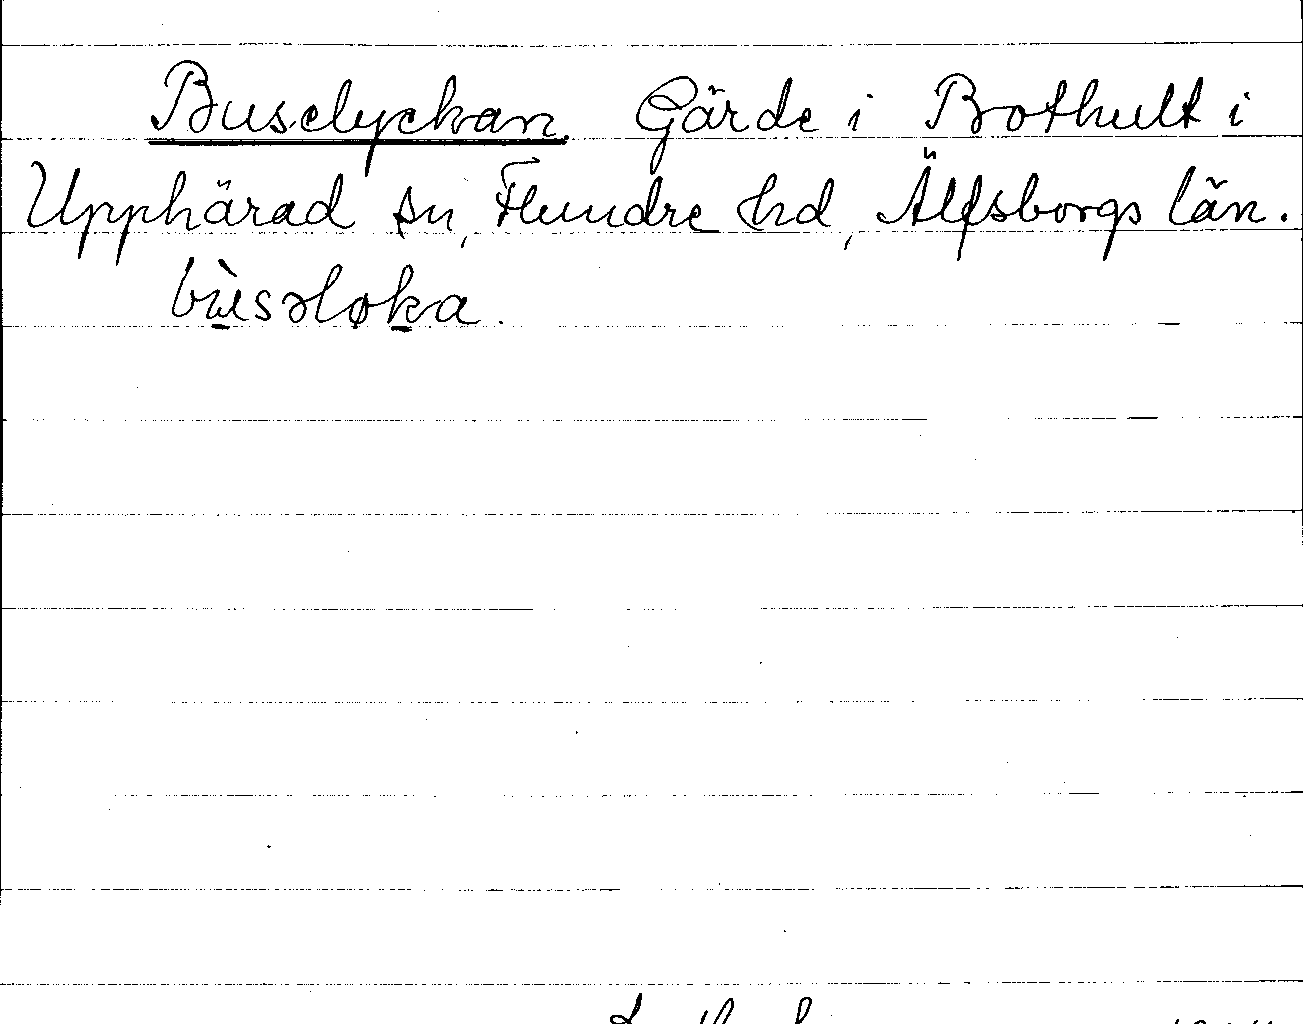 Buselyckan. Gärde i Bothult i
Upphärad sn, Flundre hd, Älfsborgs län.
bùsəløka.